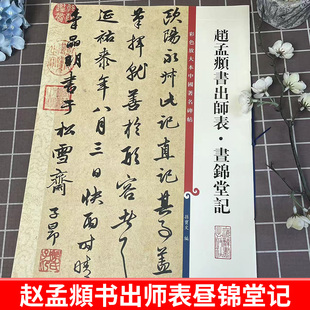 彩色放大本中國著名碑帖
趙孟頫書出師表·晝錦堂記
孫寶文 編
歐陽永叔此記直記其事蓋
揮就善於形容者
延祐年八月三日快雨時晴
書于松雪齋 子昂
赵孟頫书出师表昼锦堂记